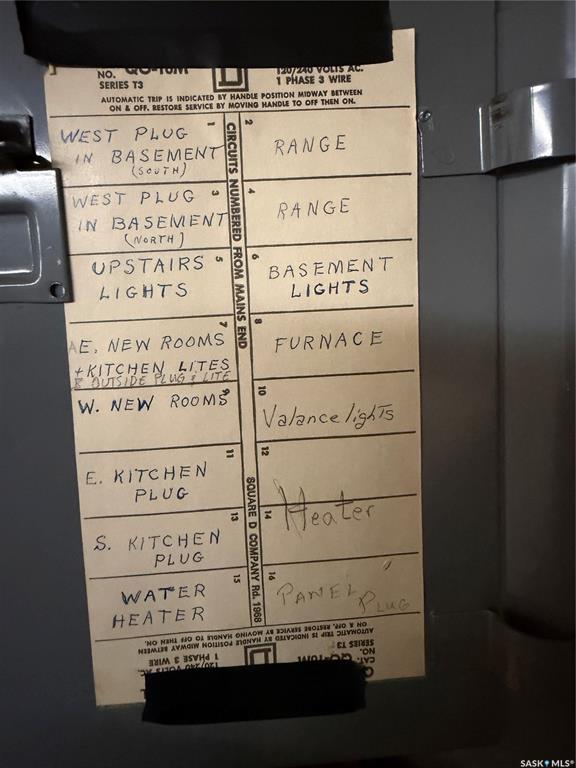 NO. QO-16M 120/240 VOLTS AC.
SERIES T3 1 PHASE 3 WIRE
AUTOMATIC TRIP IS INDICATED BY HANDLE POSITION MIDWAY BETWEEN
ON & OFF. RESTORE SERVICE BY MOVING HANDLE TO OFF THEN ON.
CIRCUITS NUMBERED FROM MAINS END
SQUARE D COMPANY Rd. 1968
1
WEST PLUG
IN BASEMENT
(SOUTH)
2
RANGE
3
WEST PLUG
IN BASEMENT
(NORTH)
4
RANGE
5
UPSTAIRS
LIGHTS
6
BASEMENT
LIGHTS
7
E. NEW ROOMS
+ KITCHEN LITES
& OUTSIDE PLUG & LITE
8
FURNACE
9
W. NEW ROOMS
10
Valance lights
11
E. KITCHEN
PLUG
12
13
S. KITCHEN
PLUG
14
Heater
15
WATER
HEATER
16
PANEL
PLUG
AUTOMATIC TRIP IS INDICATED BY HANDLE POSITION MIDWAY BETWEEN
ON & OFF. RESTORE SERVICE BY MOVING HANDLE TO OFF THEN ON.
CAT. NO. QO-16M 120/240 VOLTS AC.
SERIES T3 1 PHASE 3 WIRE
SASK MLS®